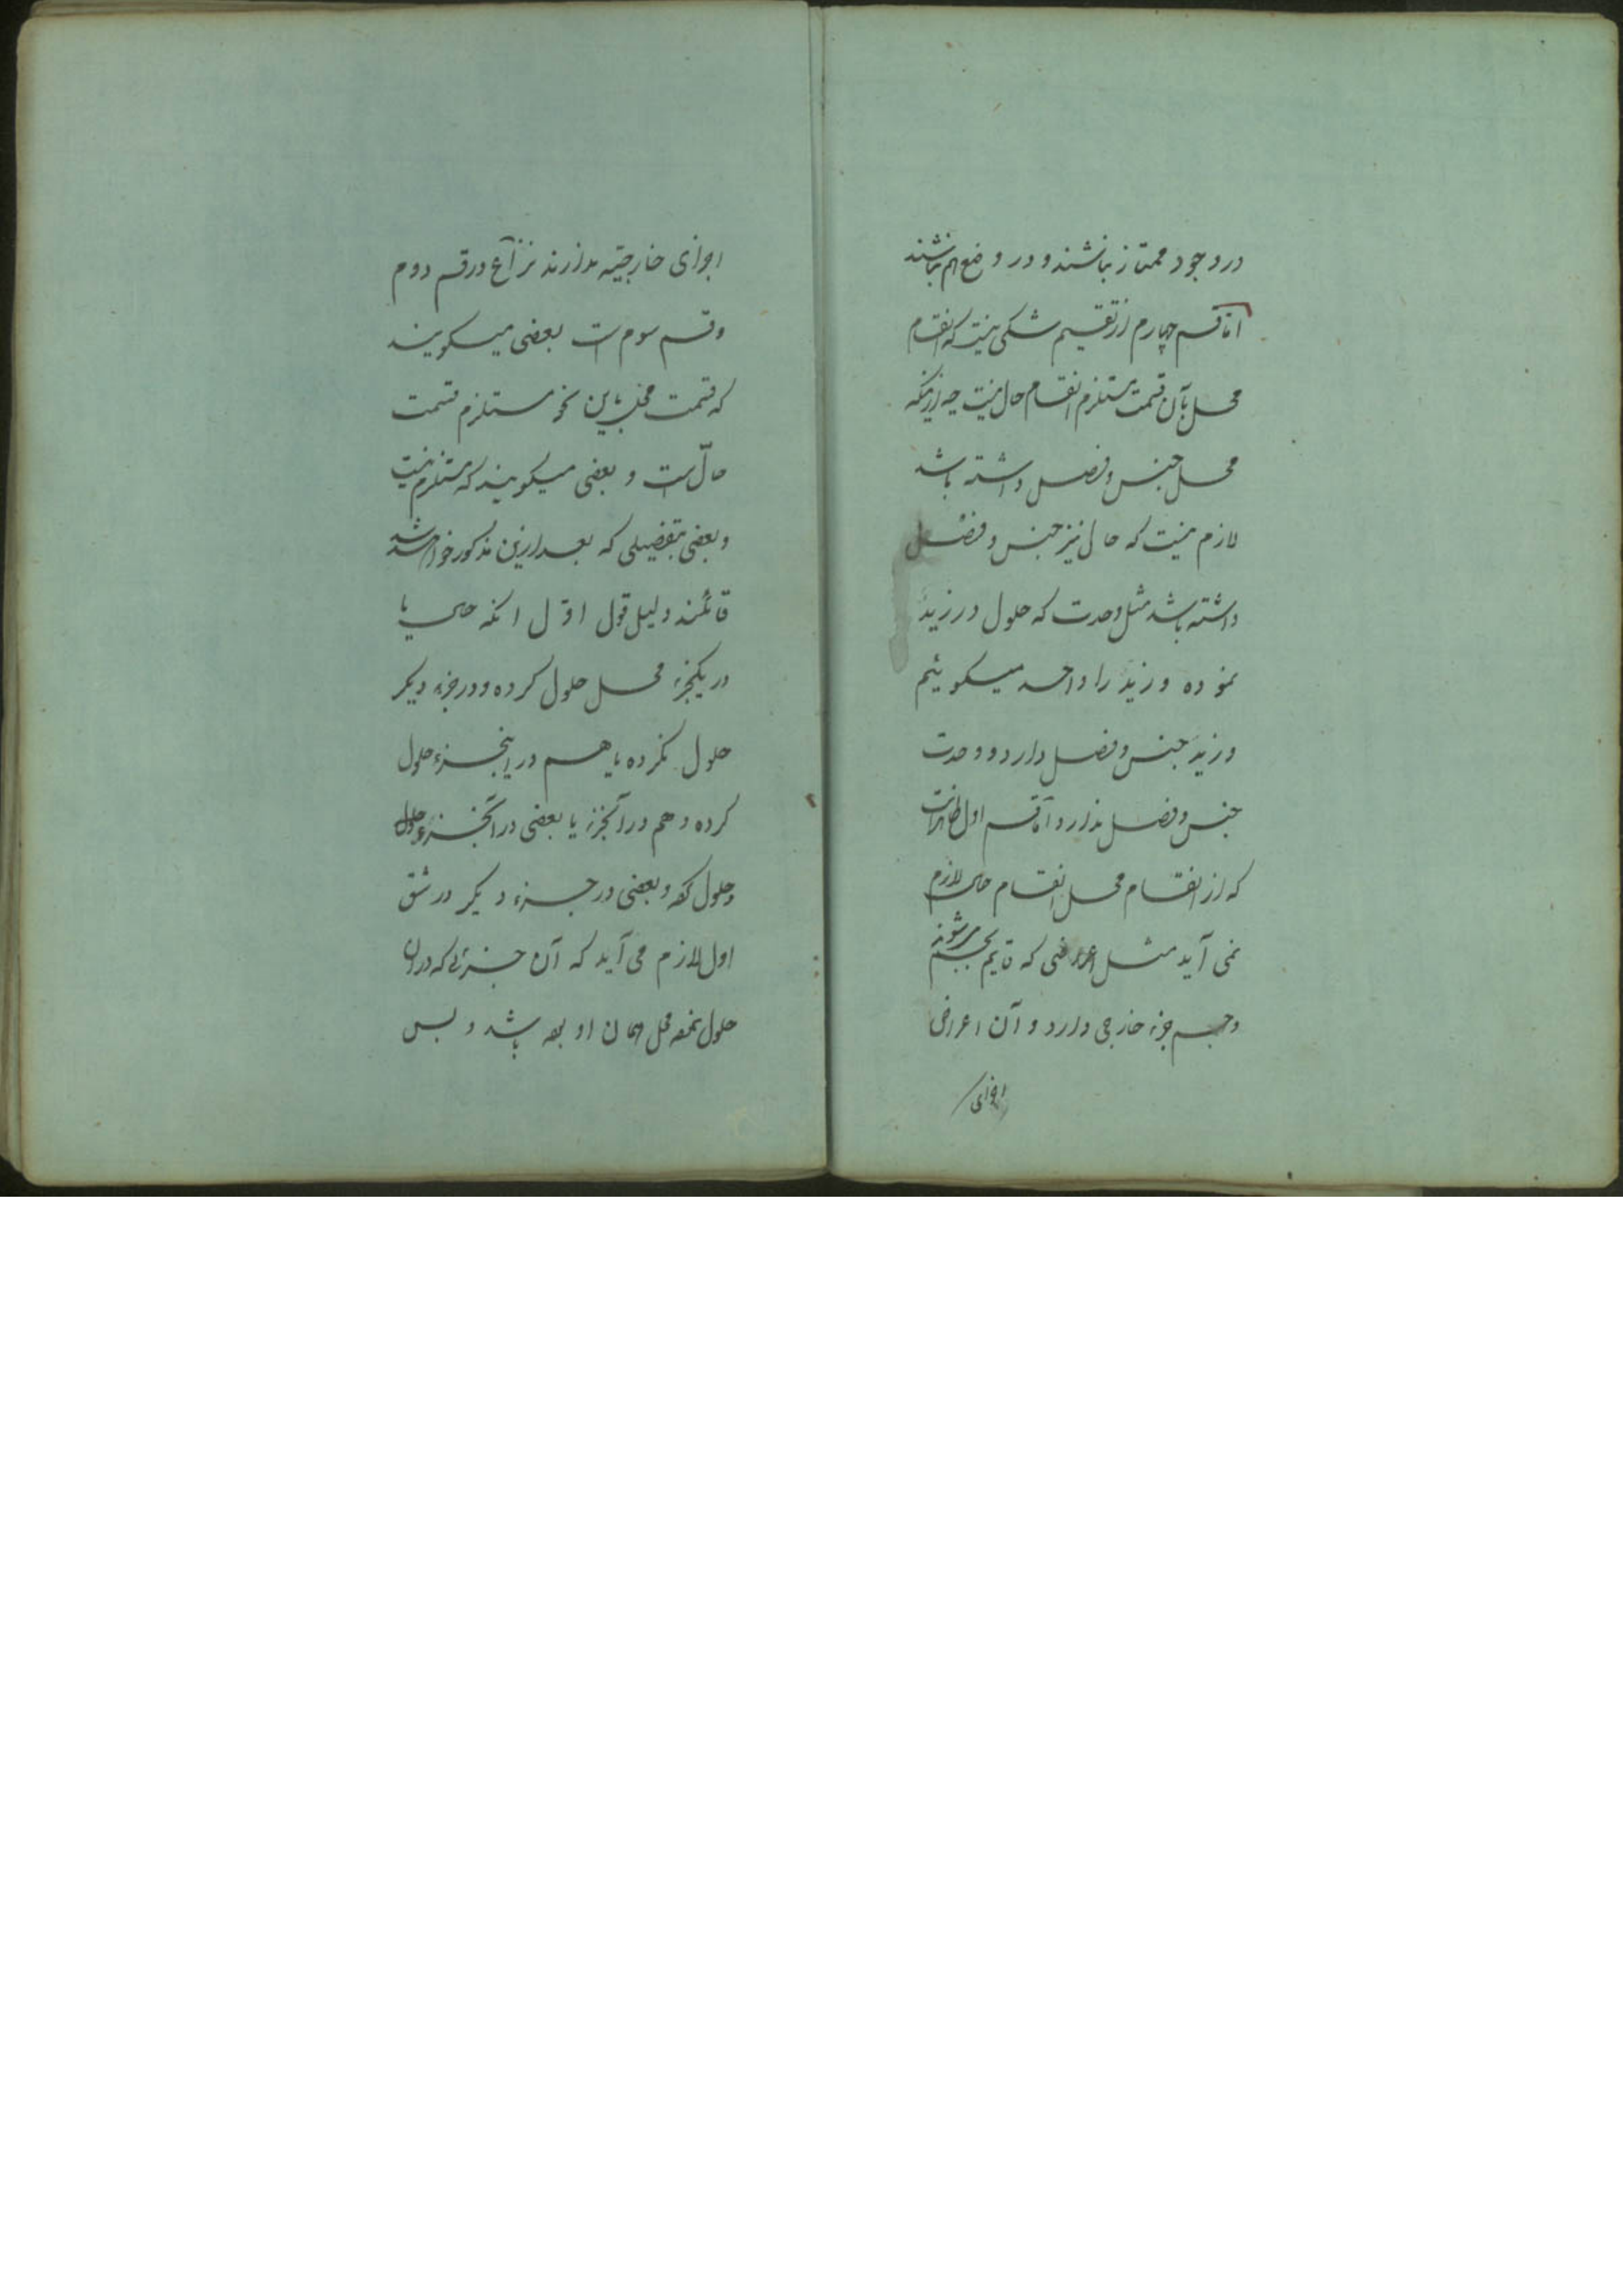 در وجود ممتاز نباشند و در وضع هم نباشند
اما قسم چهارم از تقسیم شکی نیست که انقسام
محل بآن قسمت مستلزم انقسام حال نیست چه از اینکه
محل جنس و فصل داشته باشد
لازم نیست که حال نیز جنس و فصل
داشته باشد مثل وحدت که حلول در زید
نموده و زید را واحد میکوئیم
و زید جنس و فصل دارد و وحدت
جنس و فصل ندارد و اما قسم اول ظاهر است
که از انقسام محل انقسام حال لازم
نمی آید مثل اعراضی که قایم بجسم میشوند
و جسم جزء خارجی دارد و آن اعراض
اجزای
اجزای خارجیّه ندارند نزاع در قسم دوم
و قسم سوم است بعضی میکویند
که قسمت محل باین نحو مستلزم قسمت
حالّ است و بعضی میکویند که مستلزم نیست
و بعضی بتفصیلی که بعد ازین مذکور خواهد شد
قائلند دلیل قول اوّل انکه حال یا
در یکجزء محل حلول کرده و در جزء دیکر
حلول نکرده یا هم در اینجزء حلول
کرده و هم در آنجزء یا بعضی در آنجزء
حلول کرده و بعضی در جزء دیکر در شق
اول لازم می آید که آن جزئی که در آن
حلول نموده محل همان او بوده باشد و بس